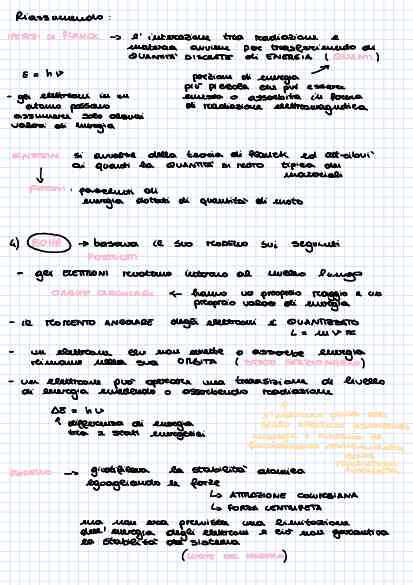 Riassumendo:
IPOTESI DI PLANCK → l'interazione tra radiazione e
materia avviene per trasferimento di
QUANTITÀ DISCRETE di ENERGIA (QUANTI)
E = hν
porzioni di energia
più piccola che può essere
emessa o assorbita in forma
di radiazione elettromagnetica
- gli elettroni in un
atomo possono
assumere solo alcuni
valori di energia
EINSTEIN si avvalse della teoria di Planck ed attribuì
ai quanti la QUANTITÀ DI MOTO tipica dei
materiali
FOTONI: pacchetti di
energia dotati di quantità di moto
4) BOHR → basava il suo modello sui seguenti
POSTULATI
- gli ELETTRONI ruotano intorno al nucleo lungo
ORBITE CIRCOLARI ← hanno un proprio raggio e un
proprio valore di energia
- IL MOMENTO ANGOLARE degli elettroni è QUANTIZZATO
L = mvr
- un elettrone che non emette o assorbe energia
rimane nella sua ORBITA (STATO STAZIONARIO)
- un elettrone può operare una transizione di livello
di energia emettendo o assorbendo radiazione
ΔE = hν
↑ differenza di energia
tra 2 stati energetici
MODELLO → giustificava la stabilità atomica
eguagliando le forze
↳ ATTRAZIONE COULOMBIANA
↳ FORZA CENTRIPETA
ma non era prevista una limitazione
dell'energia degli elettroni e ciò non garantiva
la stabilità del sistema
(LIMITE DEL MODELLO)